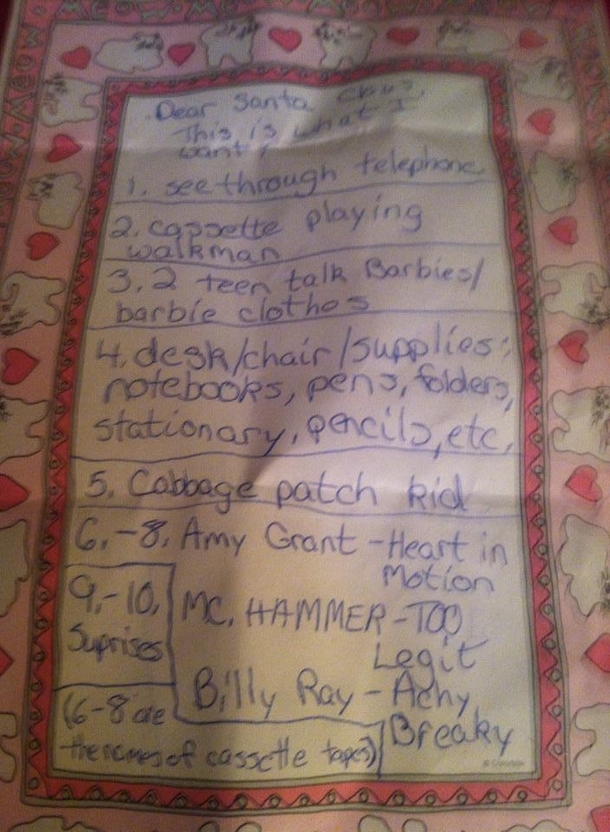 Dear Santa Claus,
This is what I
want:
1. see through telephone
2. cassette playing
walkman
3. 2 teen talk Barbies/
barbie clothes
4. desk/chair/supplies:
notebooks, pens, folders,
stationary, pencils, etc.
5. Cabbage patch kid
6.-8. Amy Grant - Heart in
Motion
MC. HAMMER - TOO
Legit
Billy Ray - Achy
Breaky
9.-10.
Suprises
(6-8 are
the names of cassette tapes)